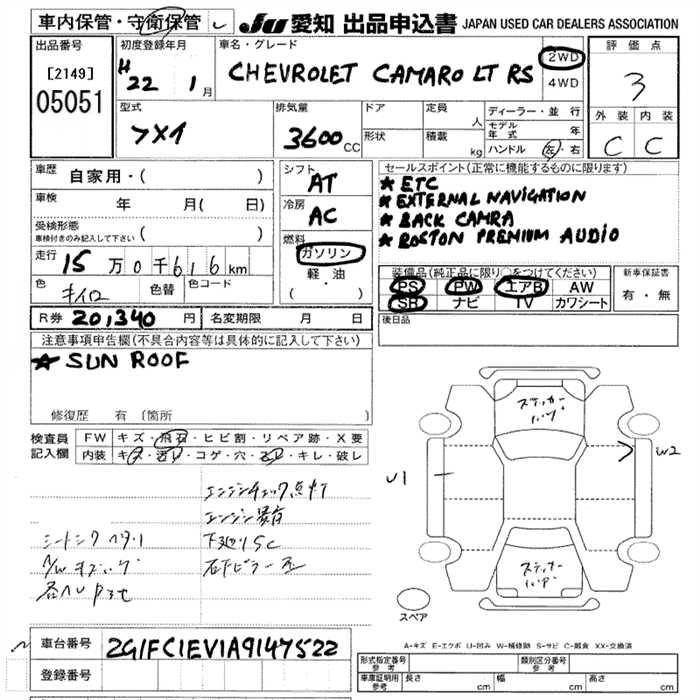 車内保管・守衛保管
JU 愛知 出品申込書 JAPAN USED CAR DEALERS ASSOCIATION
出品番号
[2149]
05051
初度登録年月
H 22 1月
車名・グレード
CHEVROLET CAMARO LT RS
2WD
4WD
評価点
3
外装 内装
C C
型式
フメイ
排気量
3600 CC
ドア
形状
定員 人
積載 kg
ディーラー・並行
モデル年式 年
ハンドル 左・右
車歴
自家用・( )
車検 年 月( 日)
受検形態
車検付きのみ記入して下さい ( )
走行 15万0千616km
色 キイロ 色替 色コード
シフト
AT
冷房
AC
燃料
ガソリン
軽油
( ・ )
セールスポイント(正常に機能するものに限ります)
★ ETC
★ EXTERNAL NAVIGATION
★ BACK CAMRA
★ BOSTON PREMIUM AUDIO
装備品(純正品に限り〇をつけてください)
PS PW エアB AW
SR ナビ TV カワシート
新車保証書
有・無
R券 20,340 円 名変期限 月 日
後日品
注意事項申告欄(不具合内容等は具体的に記入して下さい)
★ SUN ROOF
修復歴 有 (箇所
検査員記入欄
FW キズ・飛石・ヒビ割・リペア跡・X要
内装 キズ・汚レ・コゲ・穴・スレ・キレ・破レ
エンジンチェック点灯
エンジン異音
下廻りSC
ステッカー
U1
W2
ステッカー
スペア
A-キズ E-エクボ U-凹み W-補修跡 S-サビ C-腐食 XX-交換済
車台番号 2G1FC1EV1A9147522
登録番号
形式指定番号 参考
類別区分番号 参考
車庫証明用 参考 長さ cm 幅 cm 高さ cm